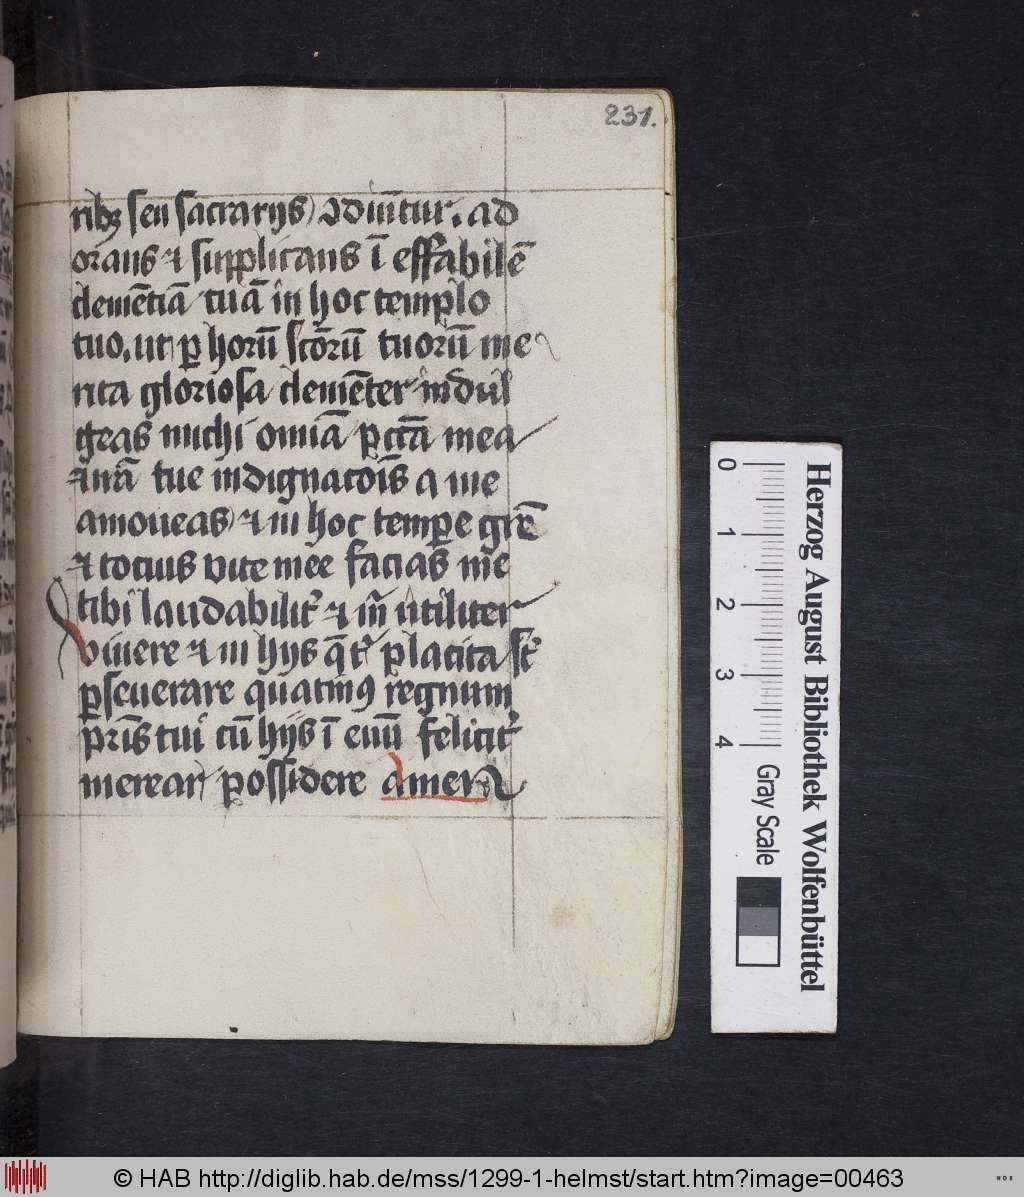 231.
ribꝫ seu sacrarijs ↄdiu͞ntur. ad
orans ⁊ supplicans i͞ effabile͞
cleme͞tia͞ tua͞ in hoc templo
tuo. ut ꝑ horu͞ sc͞oru͞ tuoru͞ me
rita gloriosa cleme͞ter indul
geas michi omnia͞ pcc͞a mea
⁊ ira͞ tue indignaco͞is a me
amoueas ⁊ in hoc tempore gr͞e
⁊ tocius vite mee facias me
tibi laudabilit͛ ⁊ m͞ utiliter
viuere ⁊ in hijs q͞ t͛ placita st͛
ꝑseuerare quatinꝯ regnum
pr͞is tui cu͞ hijs i͞ euu͞ felicit͛
merear possidere amen
0 1 2 3 4
Gray Scale
Herzog August Bibliothek Wolfenbüttel
© HAB http://diglib.hab.de/mss/1299-1-helmst/start.htm?image=00463